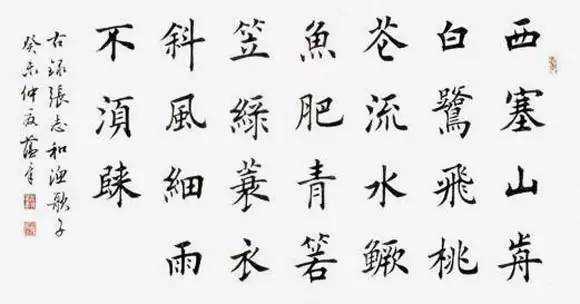 西塞山歬
白鷺飛桃
花流水鳜
魚肥青箬
笠綠蓑衣
斜風細雨
不湏歸
右録張志和漁歌子
癸未仲夏